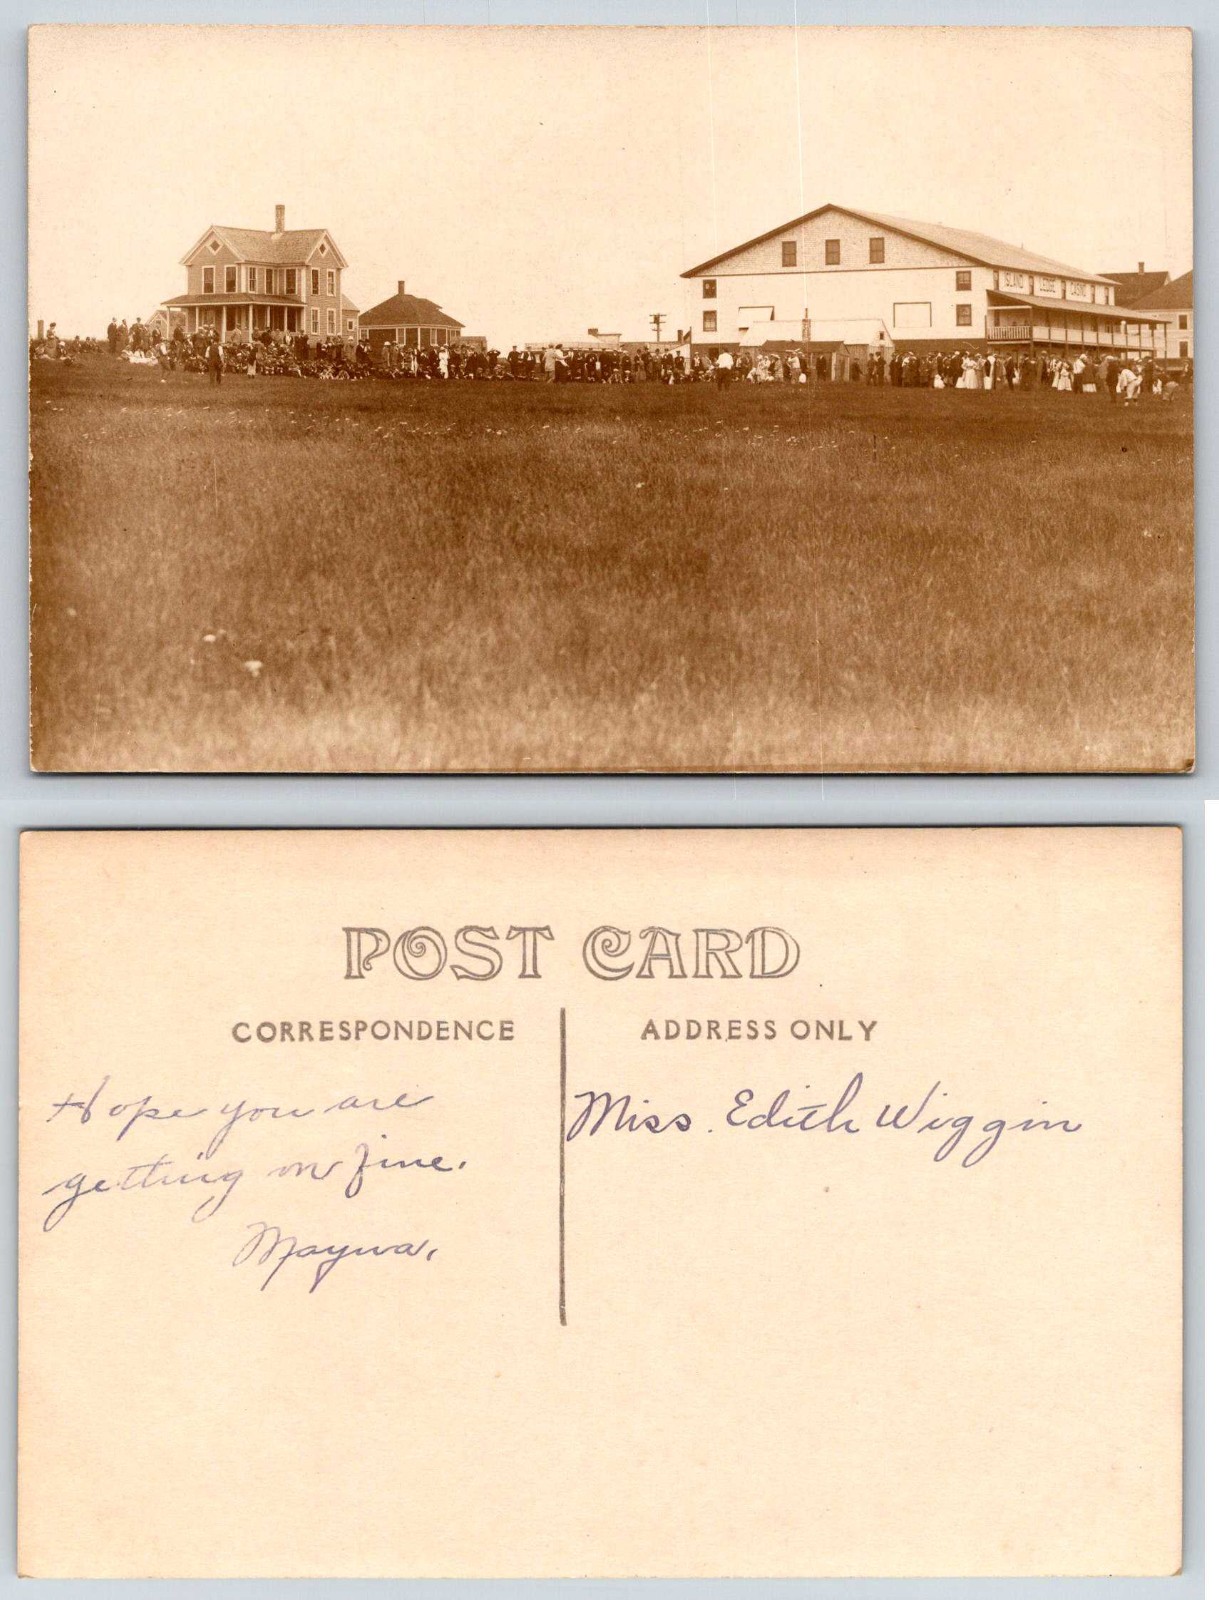 ISLAND LEDGE CASINO
POST CARD
CORRESPONDENCE
ADDRESS ONLY
Hope you are
getting on fine.
Mayna.
Miss. Edith Wiggin